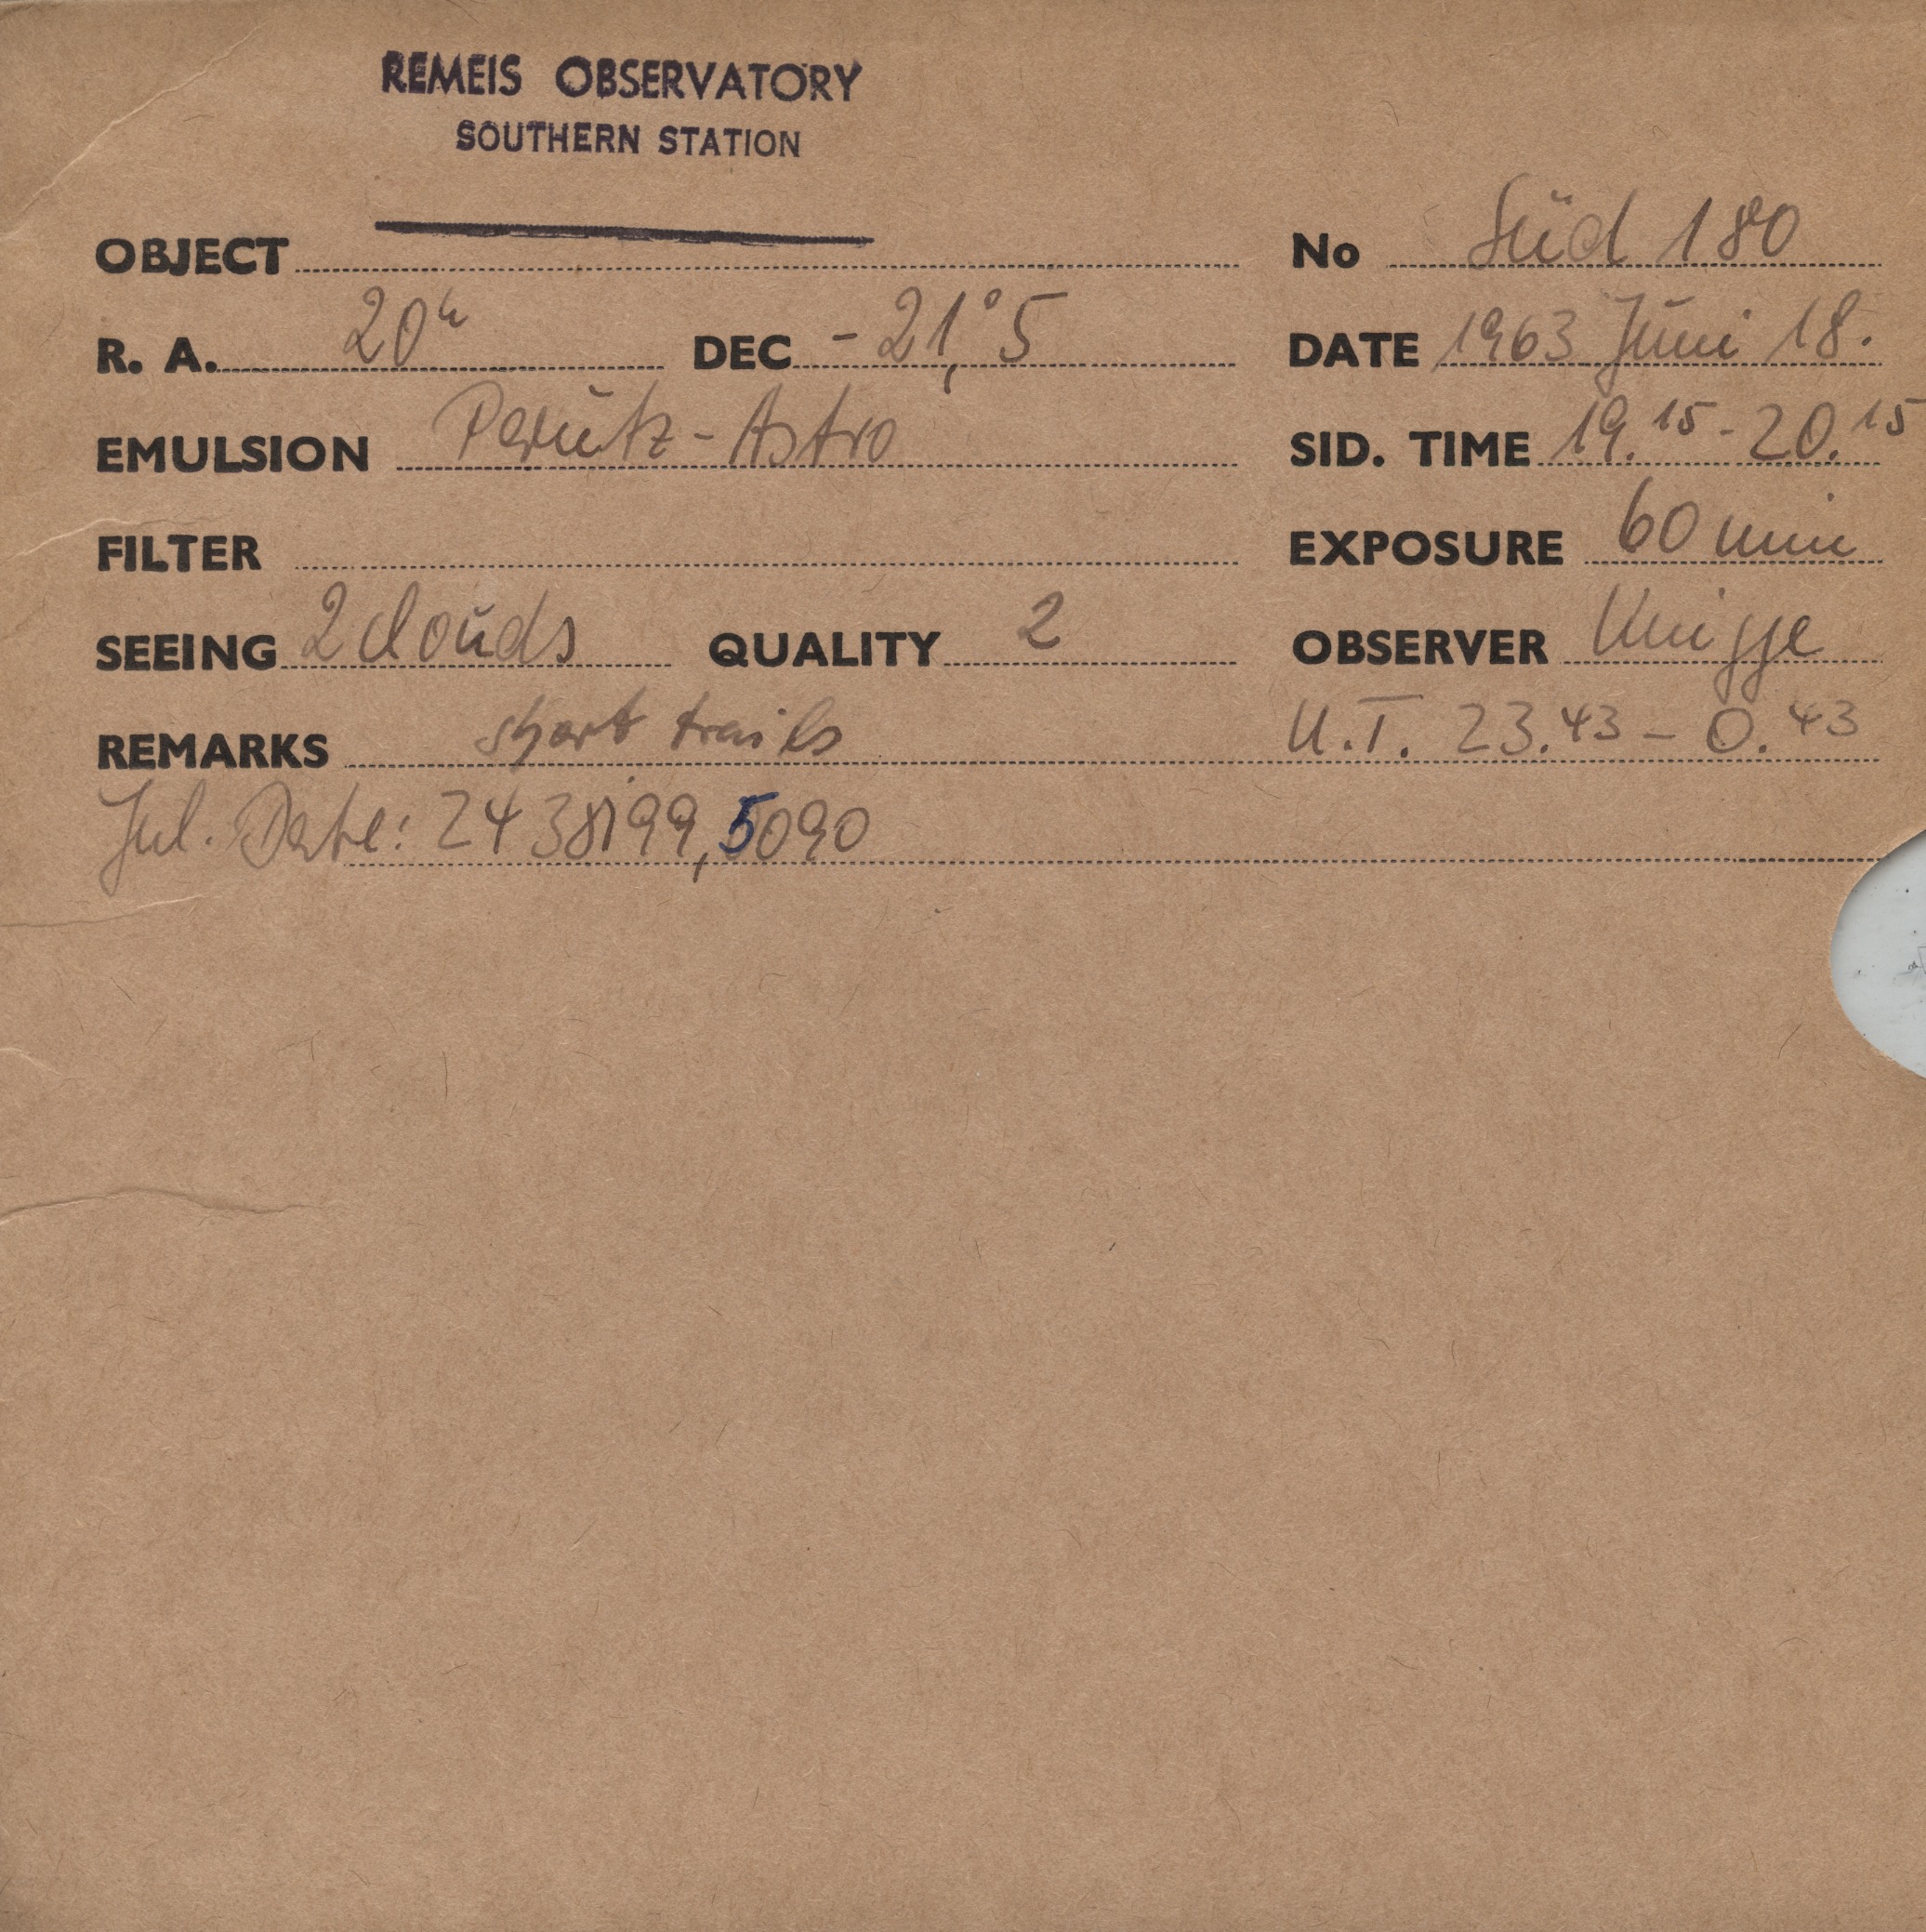 REMEIS OBSERVATORY
SOUTHERN STATION
OBJECT No Süd 180
R. A. 20h DEC -21,°5 DATE 1963 Juni 18.
EMULSION Perutz-Astro SID. TIME 19.15-20.15
FILTER EXPOSURE 60 min
SEEING 2 clouds QUALITY 2 OBSERVER Knigge
REMARKS short trails U.T. 23.43 - 0.43
Jul. Date: 2438199,5090